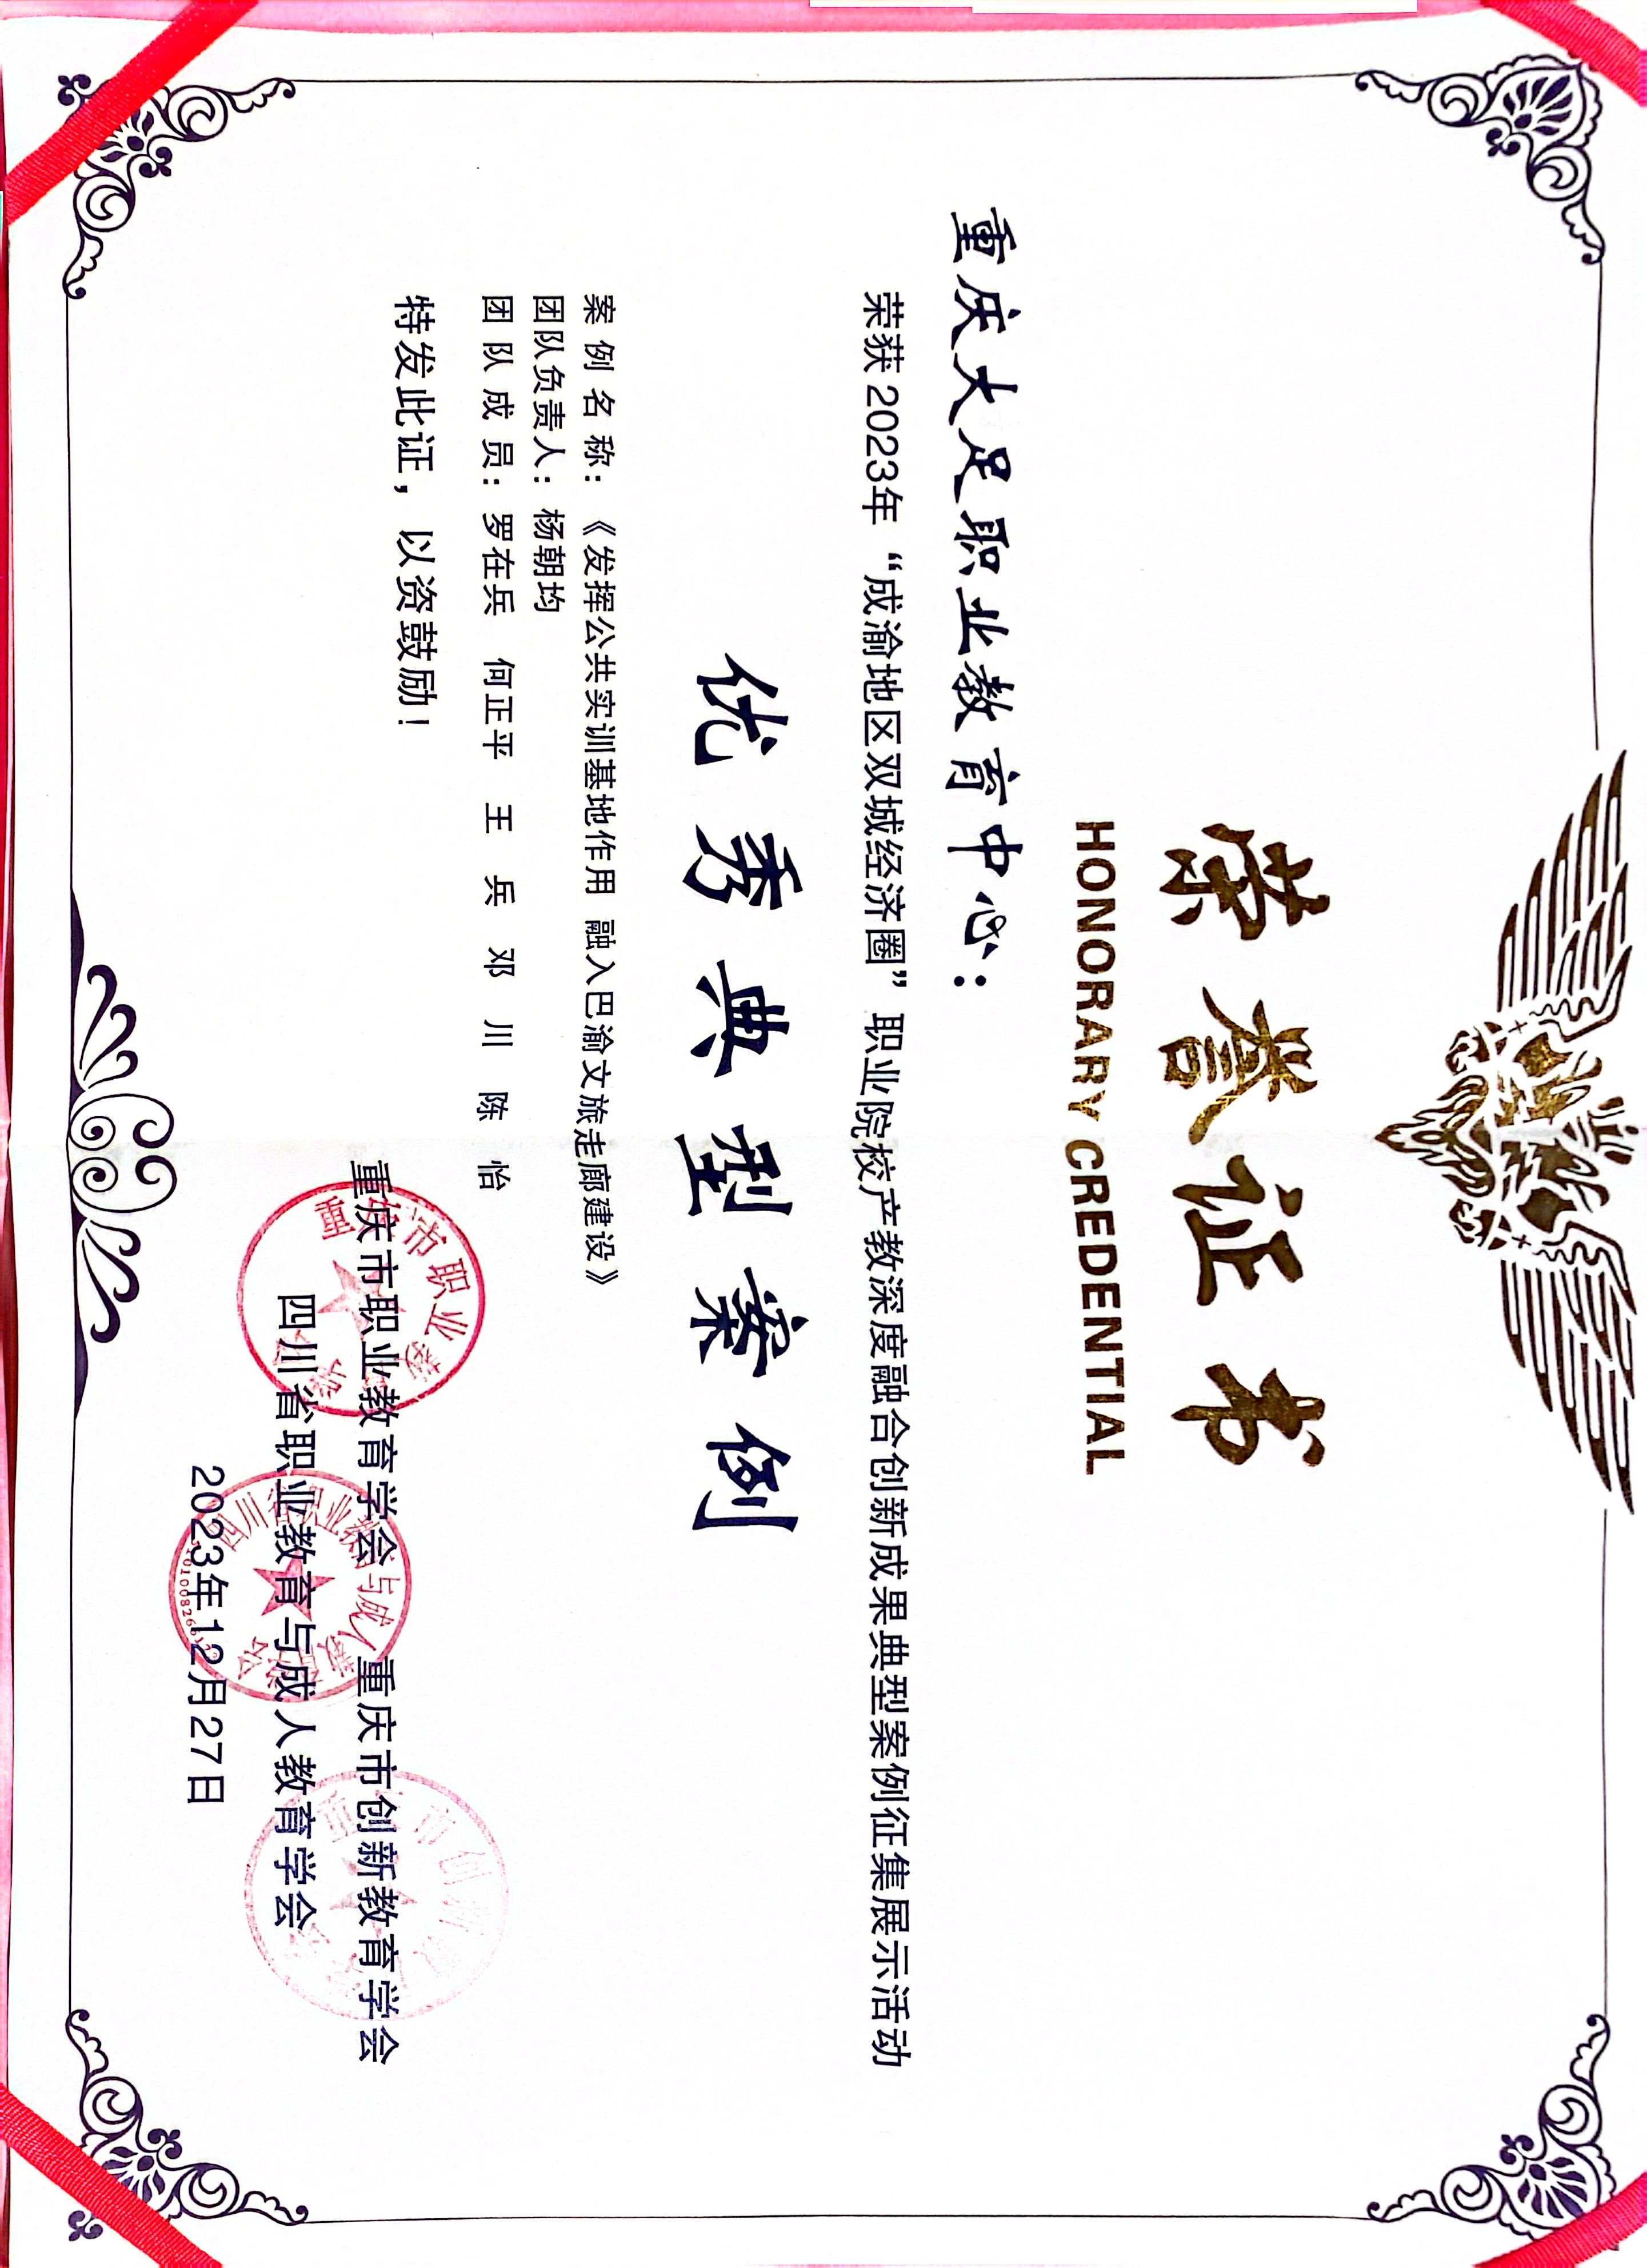 荣誉证书
HONORARY CREDENTIAL
重庆大足职业教育中心：
荣获2023年“成渝地区双城经济圈”职业院校产教深度融合创新成果典型案例征集展示活动
优秀典型案例
案例名称：《发挥公共实训基地作用 融入巴渝文旅走廊建设》
团队负责人：杨朝均
团队成员：罗在兵 何正平 王兵 邓川 陈怡
特发此证，以资鼓励！
重庆市职业教育学会 重庆市创新教育学会
四川省职业教育与成人教育学会
2023年12月27日